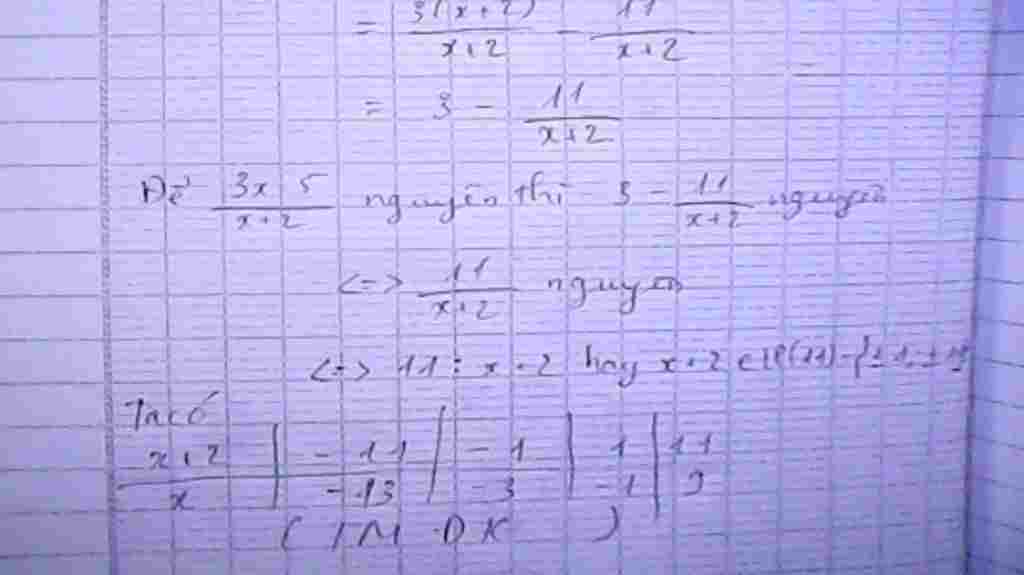 = 3(x+2)/x+2 - 11/x+2
= 3 - 11/x+2
Để 3x 5/x+2 nguyên thì 3 - 11/x+2 nguyên
<=> 11/x+2 nguyên
<=> 11 ⋮ x+2 hay x+2 ∈ Ư(11)
Ta có
x+2 | -11 | -1 | 1 | 11
x | -13 | -3 | -1 | 9
(TM ĐK)